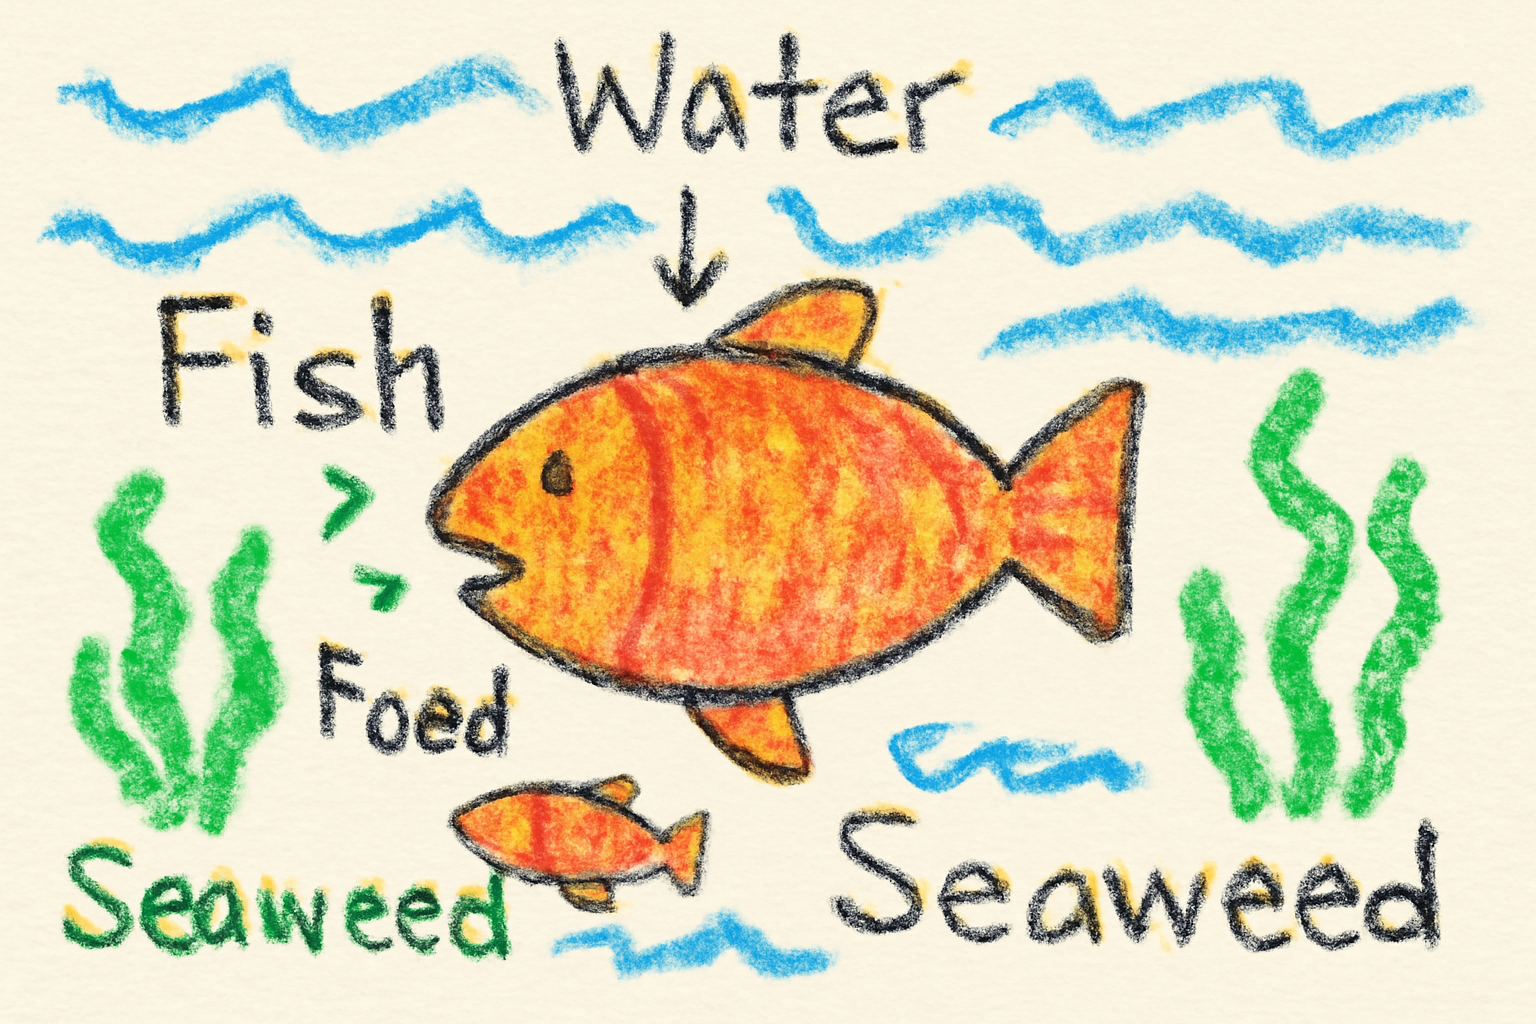 Water
Fish
Foed
Seaweed
Seaweed